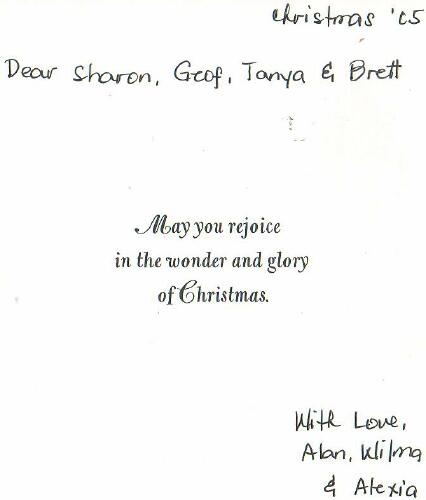 Christmas '05
Dear Sharon, Geof, Tanya & Brett
May you rejoice
in the wonder and glory
of Christmas.
With Love,
Alan, Wilma
& Alexia